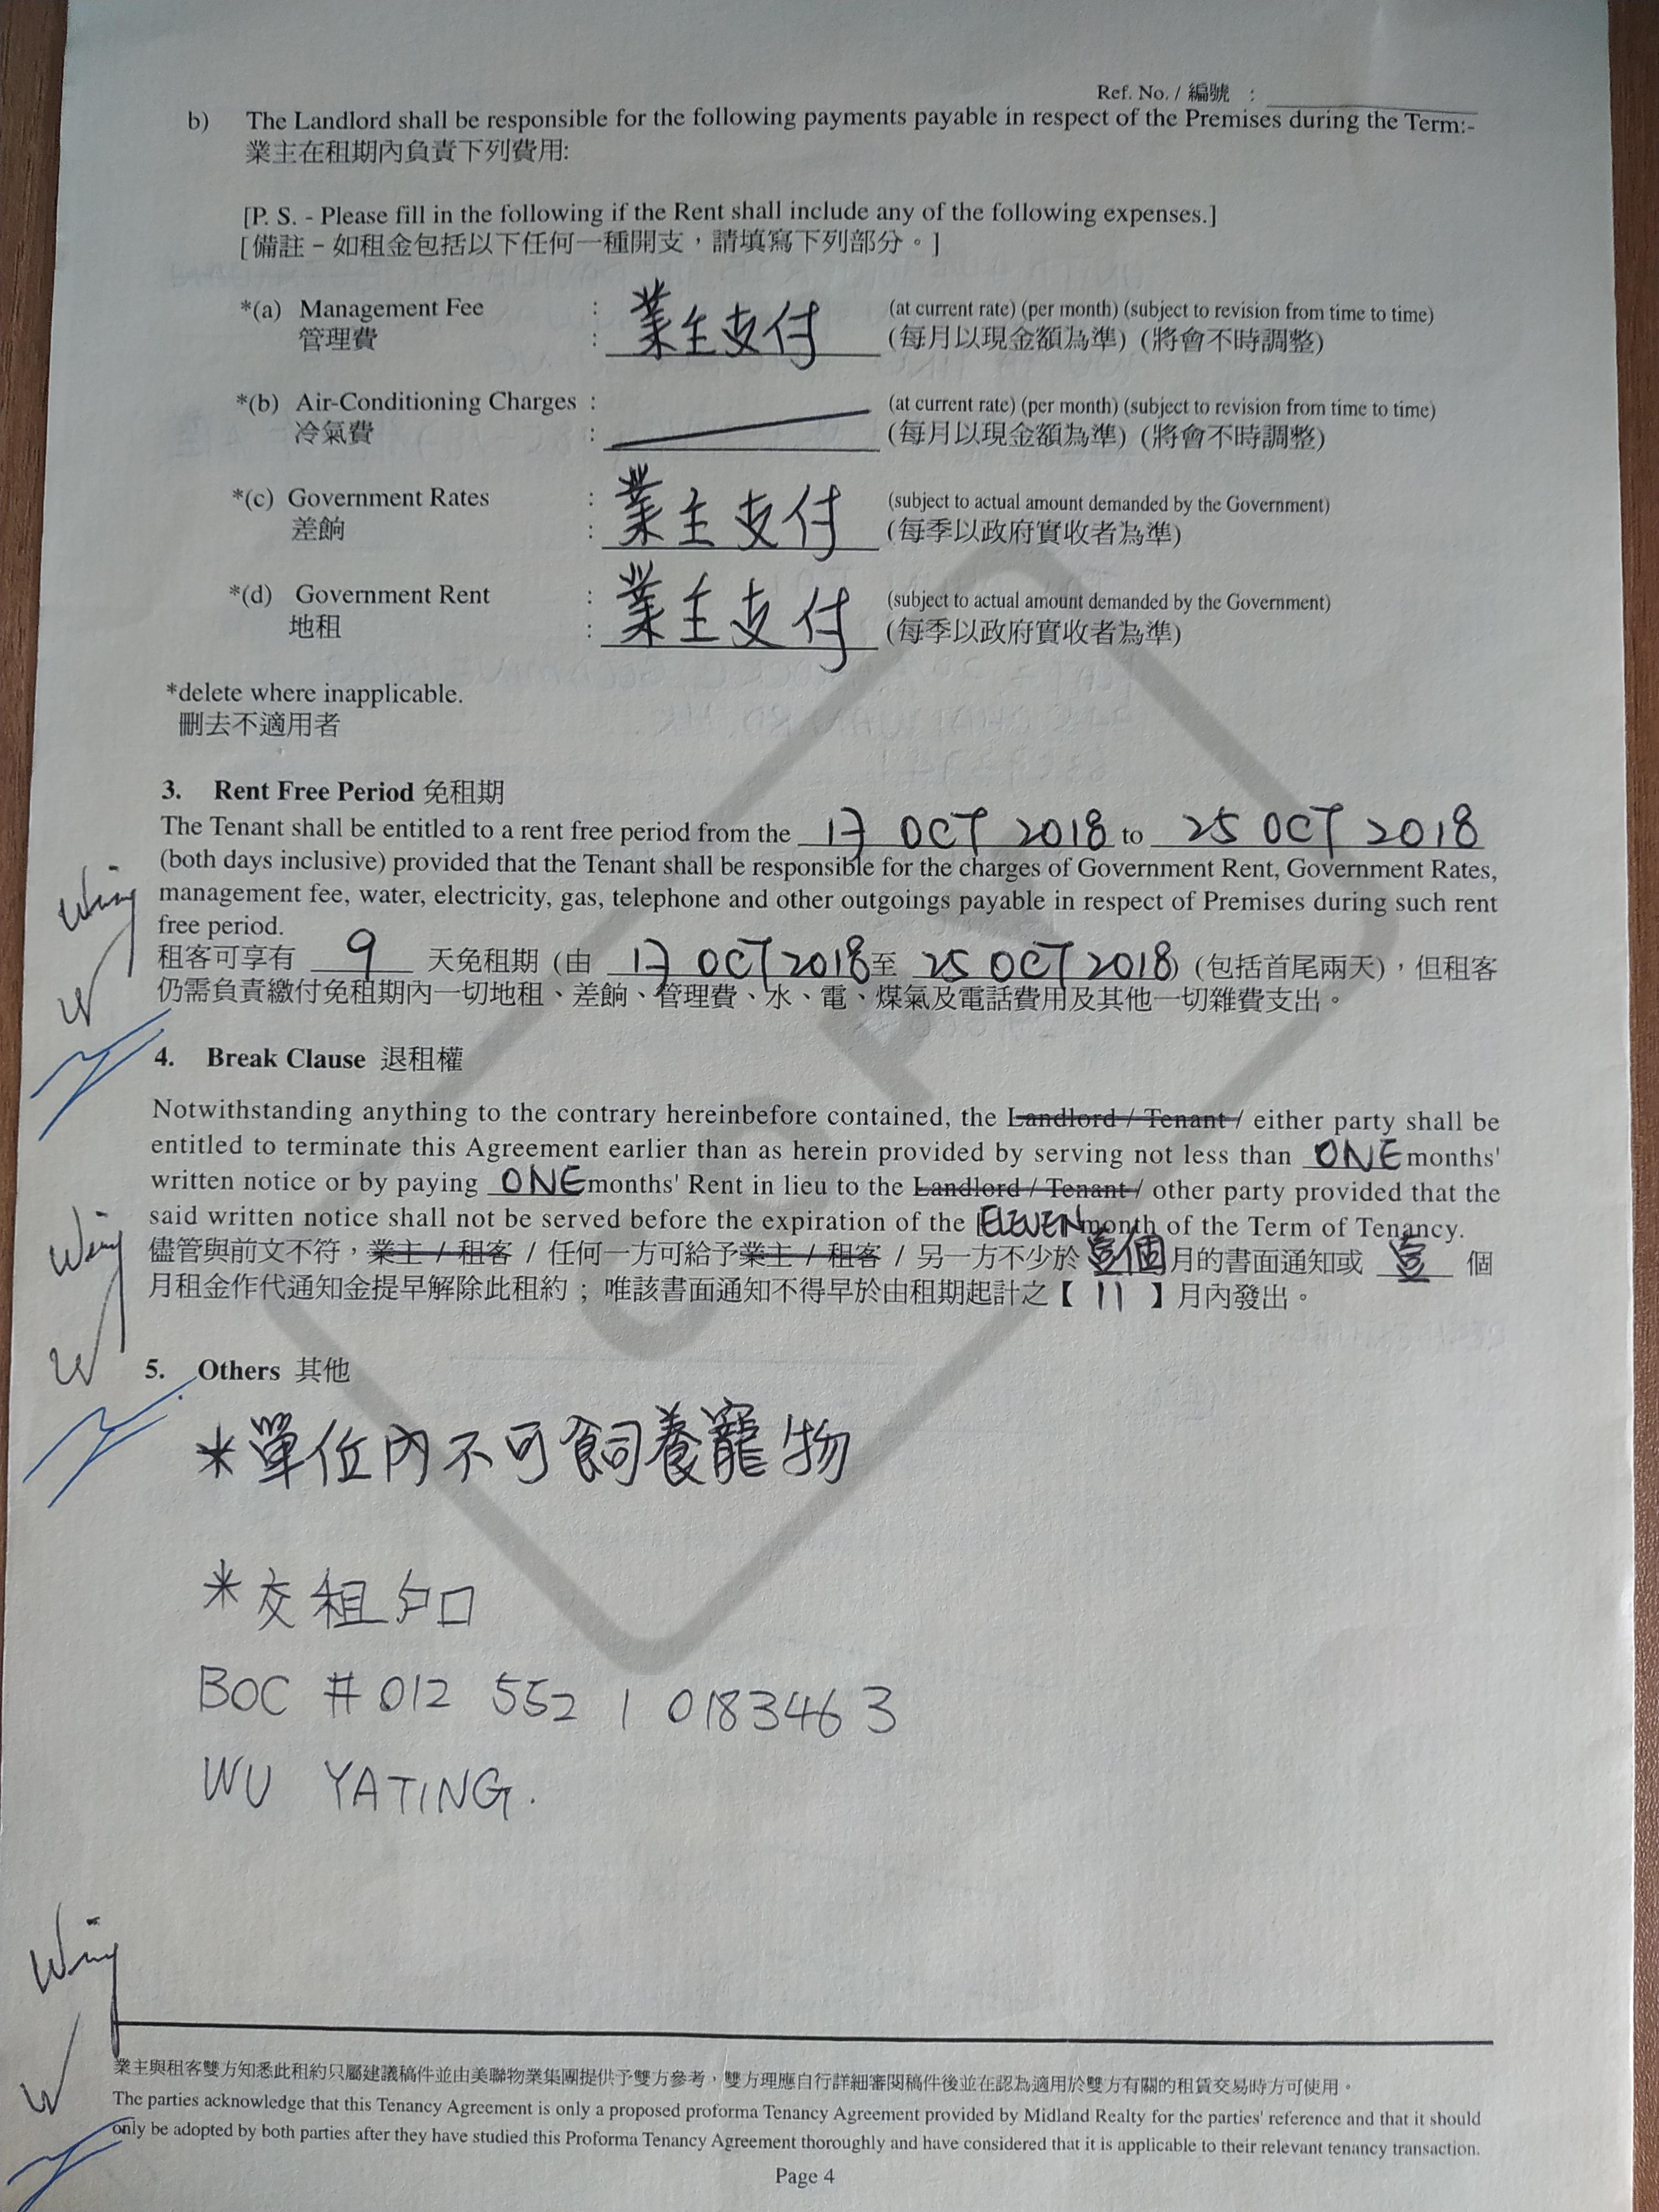 Ref. No. / 編號 :
b) The Landlord shall be responsible for the following payments payable in respect of the Premises during the Term:-
業主在租期內負責下列費用:
[P. S. - Please fill in the following if the Rent shall include any of the following expenses.]
[備註 – 如租金包括以下任何一種開支，請填寫下列部分。]
*(a) Management Fee : 業主支付 (at current rate) (per month) (subject to revision from time to time)
管理費 : (每月以現金額為準) (將會不時調整)
*(b) Air-Conditioning Charges : (at current rate) (per month) (subject to revision from time to time)
冷氣費 : (每月以現金額為準) (將會不時調整)
*(c) Government Rates : 業主支付 (subject to actual amount demanded by the Government)
差餉 : (每季以政府實收者為準)
*(d) Government Rent : 業主支付 (subject to actual amount demanded by the Government)
地租 : (每季以政府實收者為準)
*delete where inapplicable.
刪去不適用者
3. Rent Free Period 免租期
The Tenant shall be entitled to a rent free period from the 17 OCT 2018 to 25 OCT 2018
(both days inclusive) provided that the Tenant shall be responsible for the charges of Government Rent, Government Rates,
management fee, water, electricity, gas, telephone and other outgoings payable in respect of Premises during such rent
free period.
租客可享有 9 天免租期 (由 17 OCT 2018 至 25 OCT 2018) (包括首尾兩天)，但租客
仍需負責繳付免租期內一切地租、差餉、管理費、水、電、煤氣及電話費用及其他一切雜費支出。
4. Break Clause 退租權
Notwithstanding anything to the contrary hereinbefore contained, the Landlord / Tenant / either party shall be
entitled to terminate this Agreement earlier than as herein provided by serving not less than ONE months'
written notice or by paying ONE months' Rent in lieu to the Landlord / Tenant / other party provided that the
said written notice shall not be served before the expiration of the [ELEVEN month of the Term of Tenancy.
儘管與前文不符，業主 / 租客 / 任何一方可給予業主 / 租客 / 另一方不少於 壹個 月的書面通知或 壹 個
月租金作代通知金提早解除此租約；唯該書面通知不得早於由租期起計之【 11 】月內發出。
5. Others 其他
*單位內不可飼養寵物
*交租戶口
BOC # 012 552 1 0183463
WU YATING.
Wing
W
Wing
W
Wing
W
業主與租客雙方知悉此租約只屬建議稿件並由美聯物業集團提供予雙方參考，雙方理應自行詳細審閱稿件後並在認為適用於雙方有關的租賃交易時方可使用。
The parties acknowledge that this Tenancy Agreement is only a proposed proforma Tenancy Agreement provided by Midland Realty for the parties' reference and that it should
only be adopted by both parties after they have studied this Proforma Tenancy Agreement thoroughly and have considered that it is applicable to their relevant tenancy transaction.
Page 4
COPY